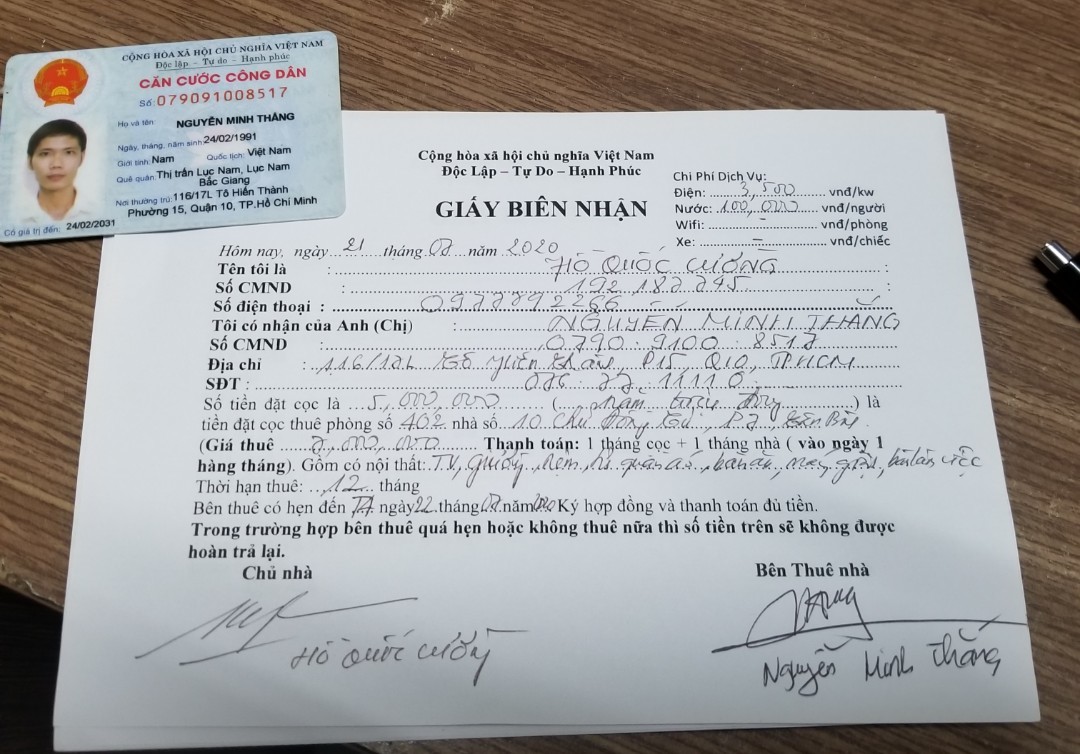 CỘNG HÒA XÃ HỘI CHỦ NGHĨA VIỆT NAM
Độc lập - Tự do - Hạnh phúc
CĂN CƯỚC CÔNG DÂN
Số: 079091008517
Họ và tên: NGUYỄN MINH THẮNG
Ngày, tháng, năm sinh: 24/02/1991
Giới tính: Nam Quốc tịch: Việt Nam
Quê quán: Thị trấn Lục Nam, Lục Nam
Bắc Giang
Nơi thường trú: 116/17L Tô Hiến Thành
Phường 15, Quận 10, TP.Hồ Chí Minh
Có giá trị đến: 24/02/2031
Cộng hòa xã hội chủ nghĩa Việt Nam
Độc Lập – Tự Do – Hạnh Phúc
GIẤY BIÊN NHẬN
Chi Phí Dịch Vụ:
Điện: 3,500 vnđ/kw
Nước: 100,000 vnđ/người
Wifi: – vnđ/phòng
Xe: – vnđ/chiếc
Hôm nay, ngày 21 tháng 07 năm 2020
Tên tôi là : HỒ QUỐC CƯỜNG
Số CMND : 192 187 795
Số điện thoại : 0977792266
Tôi có nhận của Anh (Chị) : NGUYỄN MINH THẮNG
Số CMND : 0790.9100.8517
Địa chỉ : 116/17L Tô Hiến Thành, P15, Q10, TPHCM
SĐT : 076.77.11110
Số tiền đặt cọc là 5,000,000 (năm triệu đồng) là
tiền đặt cọc thuê phòng số 402 nhà số 10 Chử Đồng Tử, P7 Tân Bình
(Giá thuê 7,000,000 Thanh toán: 1 tháng cọc + 1 tháng nhà ( vào ngày 1
hàng tháng). Gồm có nội thất: TV, giường, nệm, tủ quần áo, bàn ăn, máy giặt, bàn làm việc
Thời hạn thuê: 12 tháng
Bên thuê có hẹn đến ngày 22 tháng 07 năm 2020 Ký hợp đồng và thanh toán đủ tiền.
Trong trường hợp bên thuê quá hẹn hoặc không thuê nữa thì số tiền trên sẽ không được
hoàn trả lại.
Chủ nhà Bên Thuê nhà
HỒ QUỐC CƯỜNG Nguyễn Minh Thắng